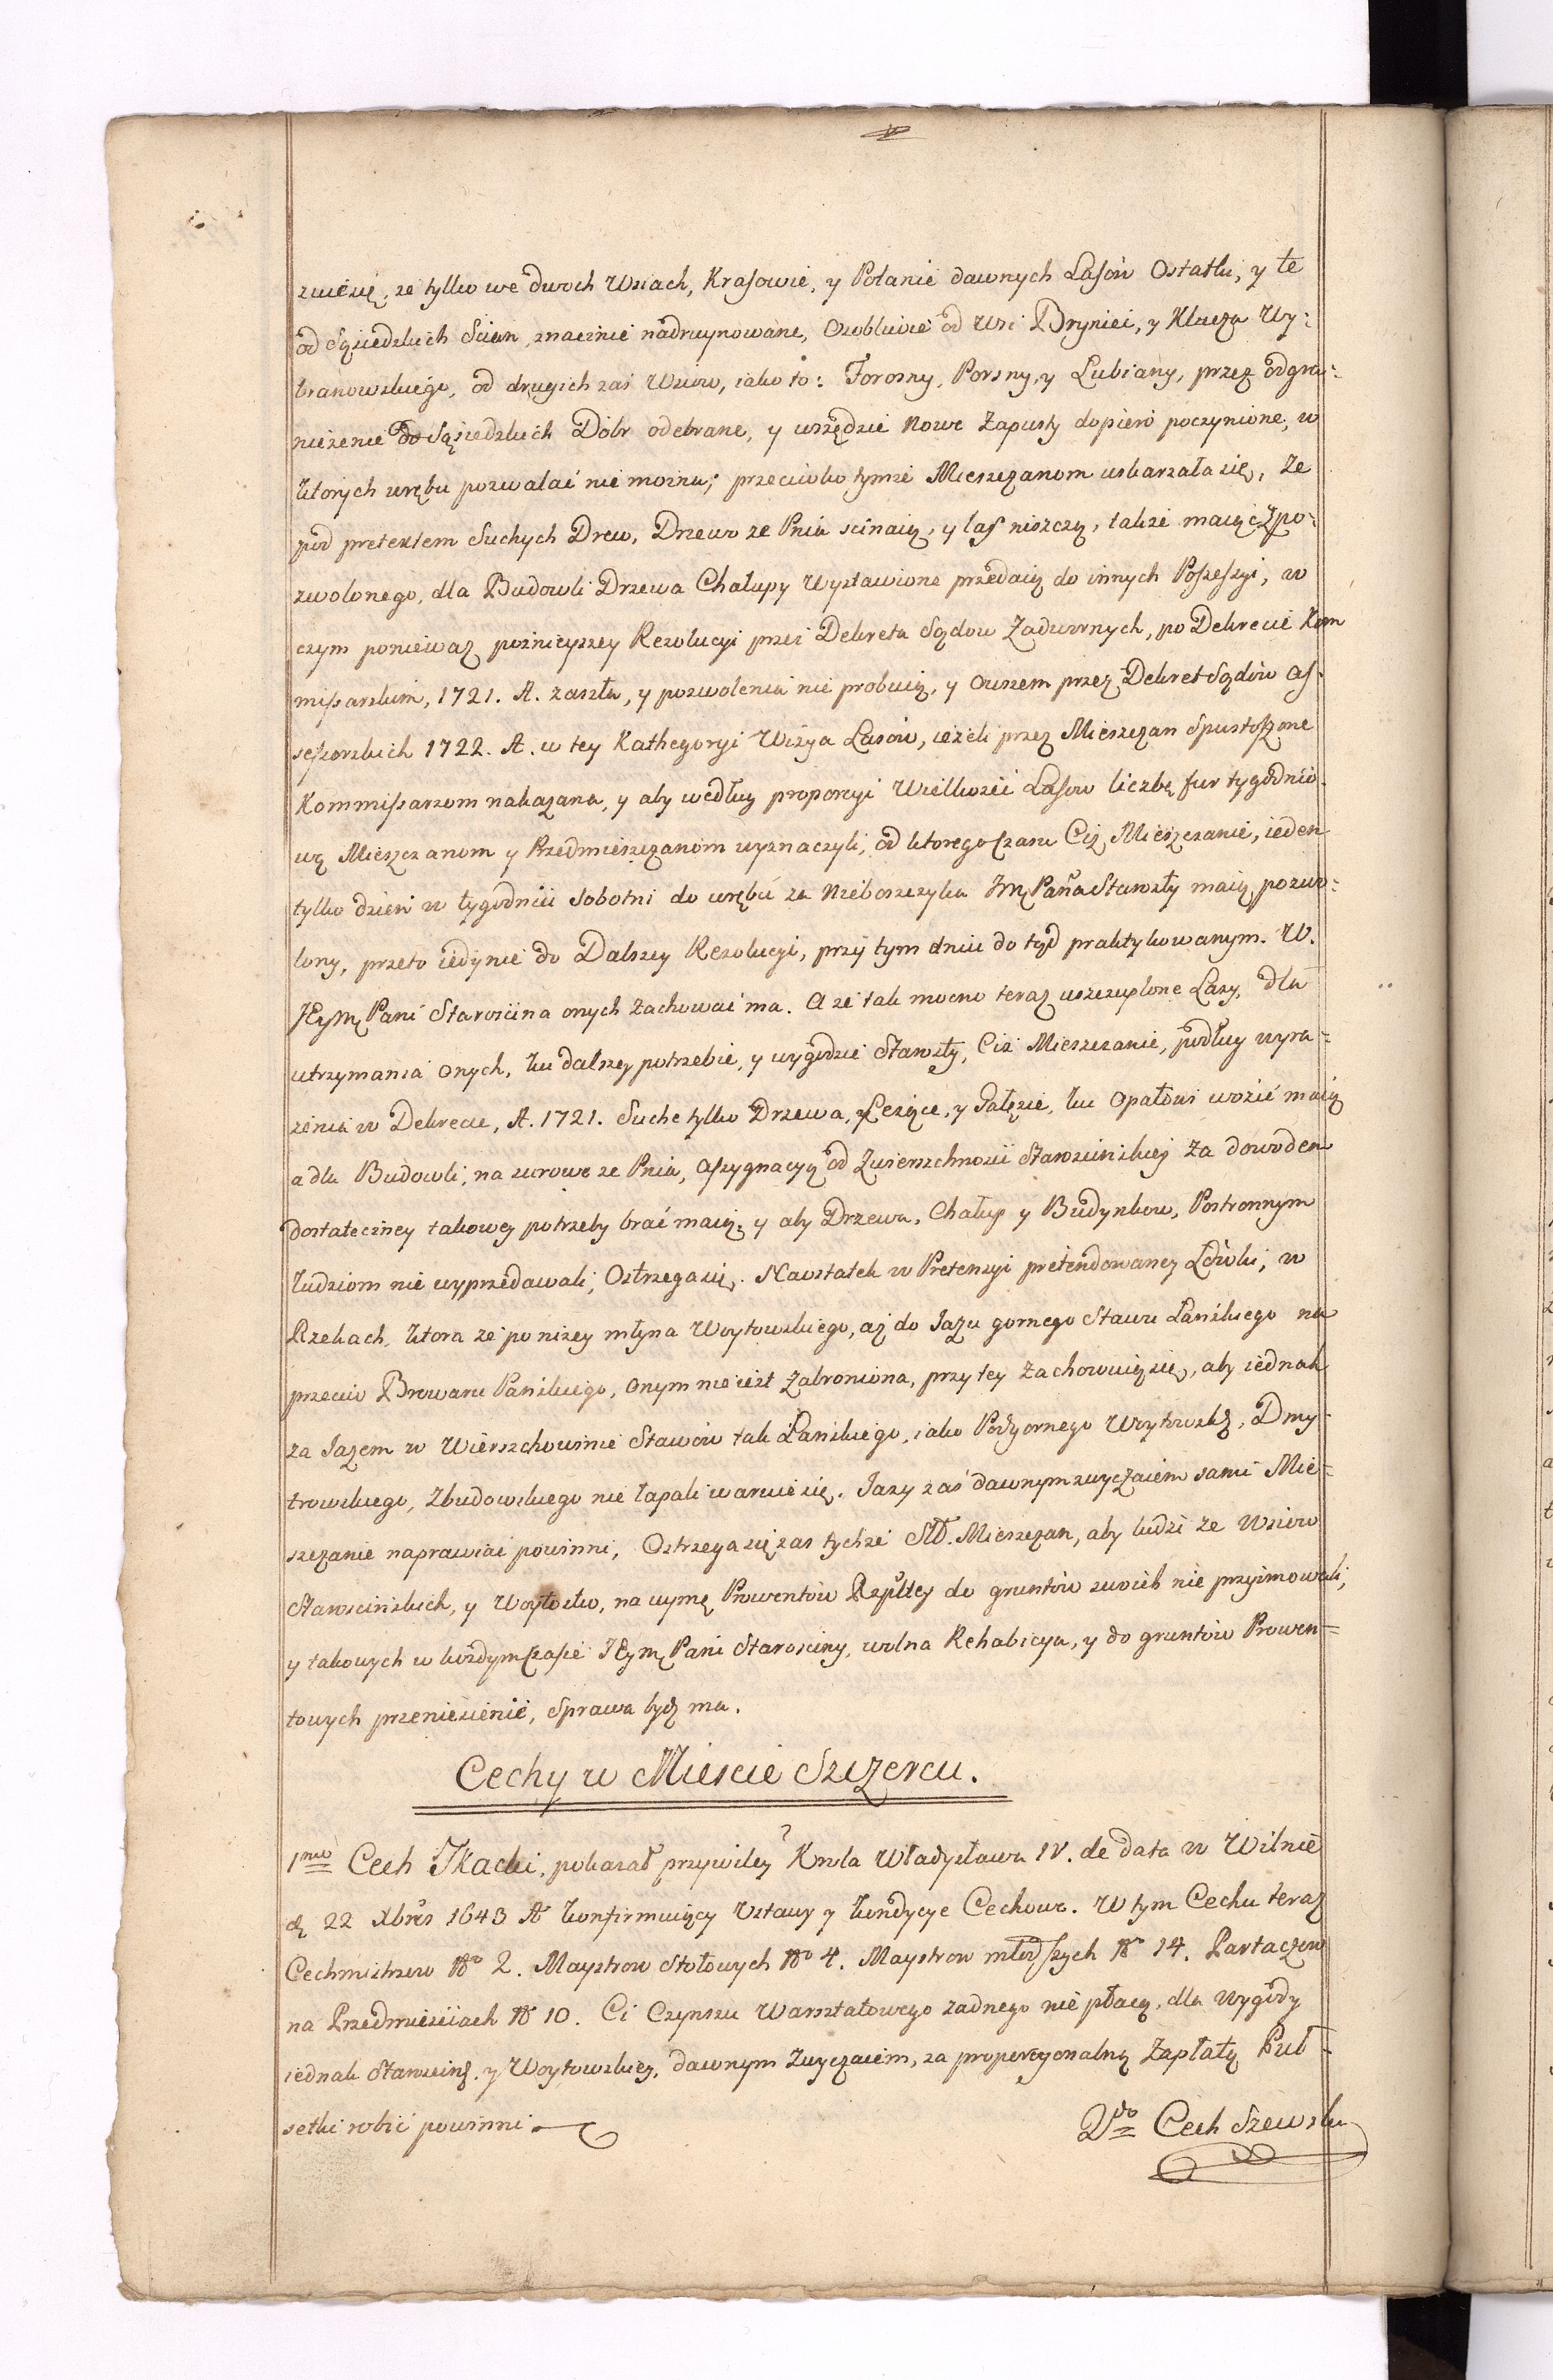 zuiesię, ze tylko we dwoch Wsiach, Krasowie, y Polanie dawnych Lasow Ostatki, y te
od Sąsiedzkich Scian, znacznie nadruynowane, Osobliwie od Wsi Bryniei, y Klucza Wy:
branowskiego, od drugich zas Wsiow, iako to: Torosny, Porsny, y Lubiany, przez odgra:
niczenie do Sąsiedzkich Dobr odebrane, y wszędzie Nowe Zapusty dopiero poczynione, w
ktorych wrębu pozwalać nie mozna; przeciwko tymze Mieszczanom uskarzała się, Ze
pod pretextem Suchych Drew, Drzewo ze Pnia scinaią, y las niszczą, takze maiąc z po:
zwolonego, dla Budowli Drzewa Chałupy Wystawione przedaią do innych Possessyi, w
czym poniewaz poznieyszey Rezolucyi przez Dekreta Sądow Zadwornych, po Dekrecie Kom
missarskim, 1721. A. zaszła, y pozwolenia nie probuią, y owszem przez Dekret Sądow As:
sessorskich 1722. A. w tey Kathegoryi Wizya Lasow, iezeli przez Mieszczan Spustoszone
Kommissarzom nakazana, y aby według proporcyi Wielkosci Lasow liczbę fur tygodnio:
wą Mieszczanom y Przedmieszczanom wyznaczyli, od ktorego Czasu Ciz Mieszczanie, ieden
tylko dzien w tygodniu Sobotni do wrębu za Nieboszczyka Jmę Pana Starosty maią pozwo:
lony, przeto iedynie do Dalszey Rezolucyi, przy tym dniu do tąd praktykowanym. W.
JEymę Pani Starościna onych zachować ma. A ze tak mocno teraz uszczuplone Lasy, dla
utrzymania Onych, ku dalszey potrzebie, y wygodzie Starosty, Ciz Mieszczanie, podług wyra=
zenia w Dekrecie, A. 1721. Suche tylko Drzewa, y Lezące, y Gałęzie, ku Opałowi wozić maią
a dla Budowli, na surowe ze Pnia, Assygnacyą od Zwierzchnosci Starościnskiej za dowodem
dostateczney takowey potrzeby brać maią, y aby Drzewa, Chałup y Budynkow, Postronnym
ludziom nie wyprzedawali, Ostrzega się. Naostatek w Pretensyi pretendowaney Łowki, w
Rzekach, ktora ze poniżey młyna Woytowskiego, az do Jazu gornego Stawu Panskiego na
przeciw Browaru Panskiego, onym nie iest zabroniona, przy tey zachowuią się, aby iednak
za Jazem w Wierzchowinie Stawow tak Panskiego, iako Podgornego Woytowsk., Dmy=
trowskiego, Zbudowskiego nie łapali waruie się. Jazy zaś dawnym zwyczaiem sami Mie=
szczanie naprawiać powinni, Ostrzega się zas tychze Sł. Mieszczan, aby ludzi ze Wsiow
Starościnskich, y Woytostw, na uymę Prowentow Rzpltey do gruntow swoich nie przyimowali,
y takowych w kazdym Czasie JEymę Pani Starosciny, wolna Rehabicya, y do gruntow Prowen=
towych przeniesienie, Sprawa byd ma.
Cechy w Miescie Szczercu.
1mo Cech Tkacki, pokazał przywiley Krola Władysława IV. de data w Wilnie
d. 22 Xbris 1643 A konfirmuiący Ustawy y kondycye Cechowe. W tym Cechu teraz
Cechmistrzow No 2. Maystrow Stołowych No 4. Maystrow młodszych No 14. Partaczow
na Przedmiesciach No 10. Ci Czynszu Warsztatowego zadnego nie płacą, dla wygody
iednak Starościns. y Woytowskiey, dawnym Zwyczaiem, za proporcyonalną Zapłatą Puł=
setki robić powinni.
2do Cech Szewski